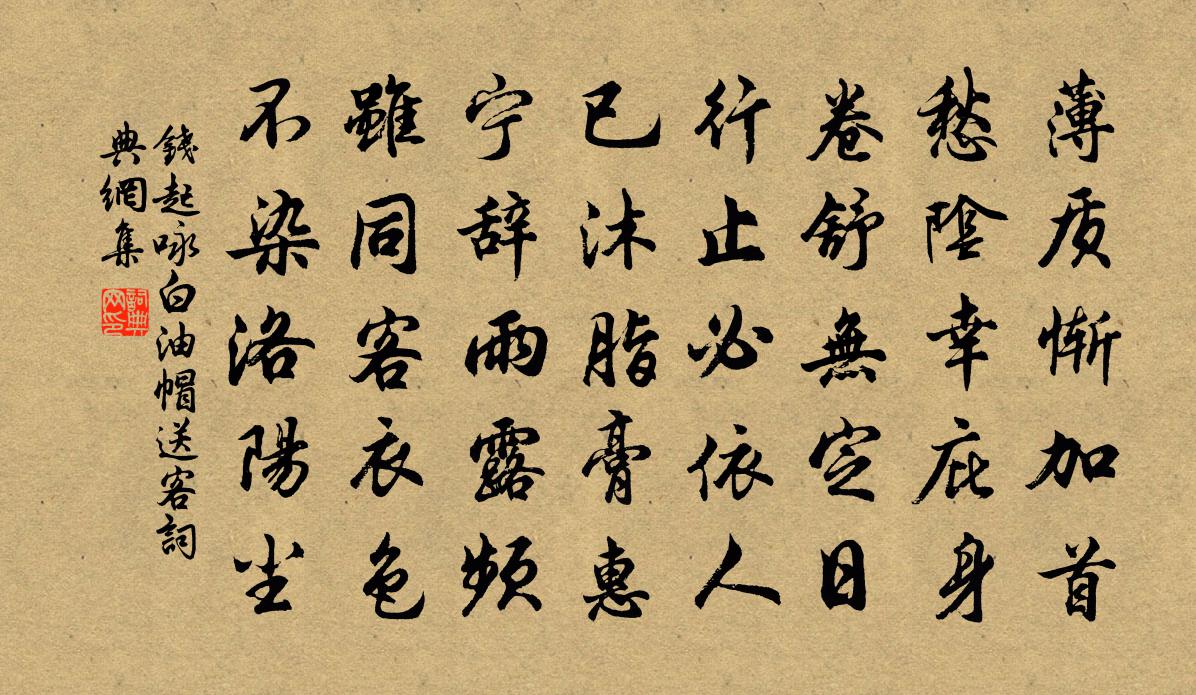 薄质惭加首
愁陰幸庇身
卷舒無定日
行止必依人
已沐脂膏惠
宁辞雨露频
雖同客衣色
不染洛陽尘
錢起咏白油帽送客詞
典網集
詞典
网印